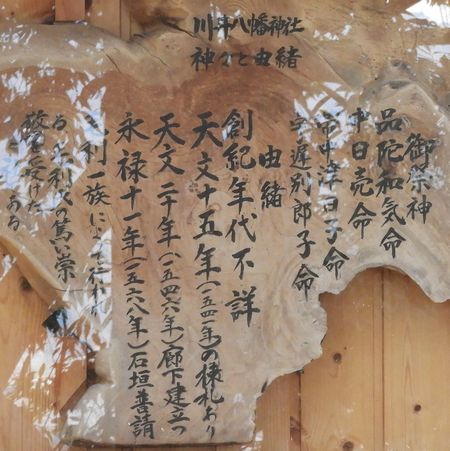 川年八幡神社
神々と由緒
御祭神
品陀和気命
中日売命
市中津日子命
宇遅別郎子命
由緒
創紀年代不詳
天文十五年(一五四一年)の棟札あり
天文二十年(一五四六年)廊下建立つ
永禄十一年(一五六八年)石垣普請
毛利一族に
の篤い崇
敬を受けた
ある